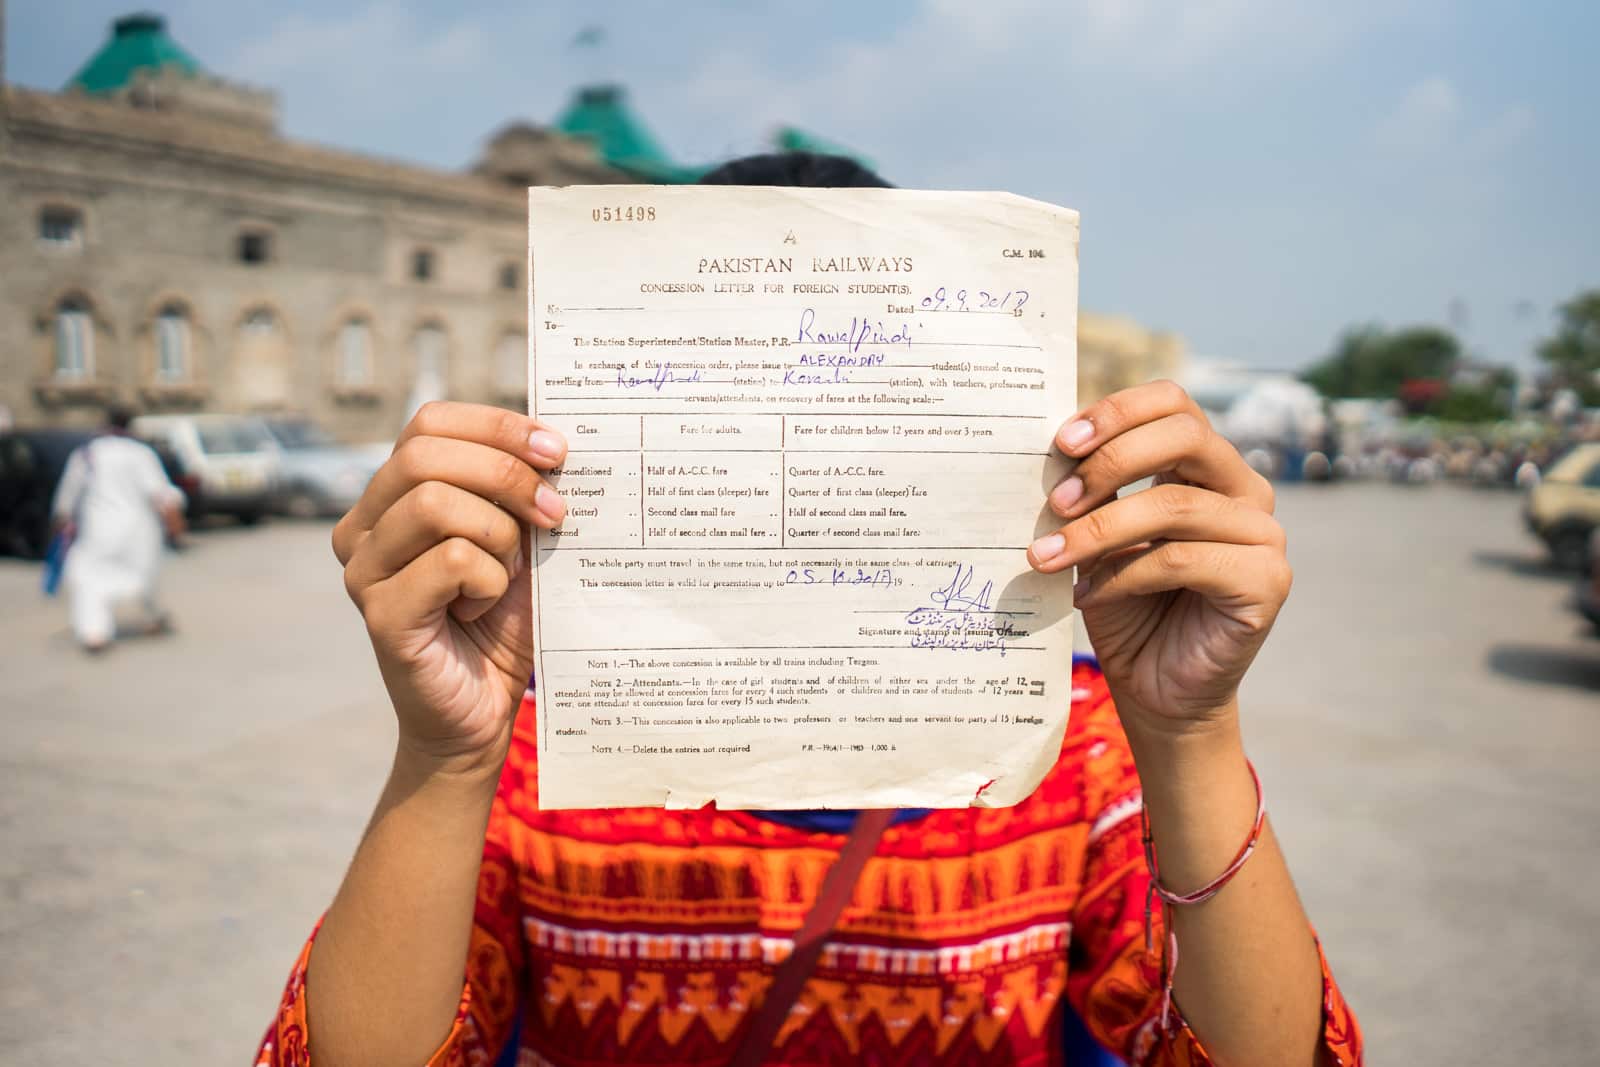 051498
A
C.M. 104.
PAKISTAN RAILWAYS
CONCESSION LETTER FOR FOREIGN STUDENT(S).
No. Dated 09.9.2017 19 .
To—
The Station Superintendent/Station Master, P.R. Rawalpindi
In exchange of this concession order, please issue to ALEXANDRA student(s) named on reverse,
travelling from Rawalpindi (station) to Karachi (station), with teachers, professors and
servants/attendants, on recovery of fares at the following scale:—
Class. Fare for adults. Fare for children below 12 years and over 3 years.
Air-conditioned .. Half of A.-C.C. fare .. Quarter of A.-C.C. fare.
rst (sleeper) .. Half of first class (sleeper) fare Quarter of first class (sleeper) fare
t (sitter) .. Second class mail fare .. Half of second class mail fare.
Second .. Half of second class mail fare .. Quarter of second class mail fare.
The whole party must travel in the same train, but not necessarily in the same class of carriage.
This concession letter is valid for presentation up to 05.10.2017 19 .
Signature and stamp of Issuing Officer.
پاکستان ریلویز راولپنڈی
NOTE 1.—The above concession is available by all trains including Tezgam.
NOTE 2.—Attendants.—In the case of girl students and of children of either sex under the age of 12, one
attendant may be allowed at concession fares for every 4 such students or children and in case of students of 12 years and
over, one attendant at concession fares for every 15 such students.
NOTE 3.—This concession is also applicable to two professors or teachers and one servant for party of 15 foreign
students.
NOTE 4.—Delete the entries not required P.R.—1964/1—1983—1,000